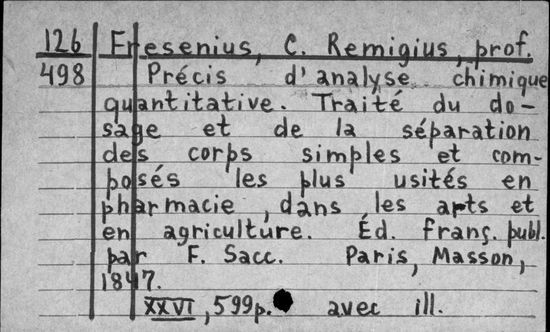 126 Fresenius, C. Remigius, prof.
498 Précis d'analyse chimique
quantitative. Traité du do-
sage et de la séparation
des corps simples et com-
posés les plus usités en
pharmacie, dans les arts et
en agriculture. Éd. franç. publ.
par F. Sacc. Paris, Masson,
1847.
XXVI, 599p. avec ill.